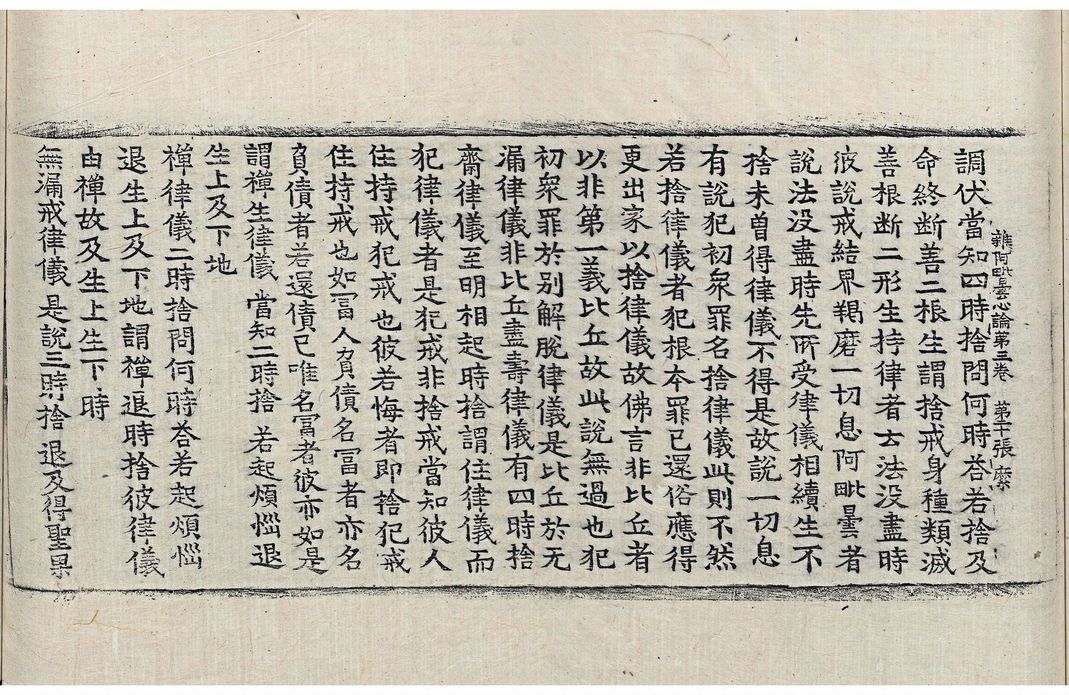 雜阿毗曇心論第三卷 第十張 麼
調伏當知四時捨問何時荅若捨及
命終斷善二根生謂捨戒身種類滅
善根斷二形生持律者言法没盡時
彼說戒結界羯磨一切息阿毗曇者
說法没盡時先所受律儀相續生不
捨未曽得律儀不得是故說一切息
有說犯初衆罪名捨律儀此則不然
若捨律儀者犯根本罪已還俗應得
更出家以捨律儀故佛言非比丘者
以非第一義比丘故此說無過也犯
初衆罪於别解脫律儀是比丘於无
漏律儀非比丘盡壽律儀有四時捨
齋律儀至明相起時捨謂住律儀而
犯律儀者是犯戒非捨戒當知彼人
住持戒犯戒也彼若悔者即捨犯戒
住持戒也如冨人負債名冨者亦名
負債者若還債已唯名冨者彼亦如是
謂禪生律儀 當知二時捨 若起煩惱退
生上及下地
禪律儀二時捨問何時荅若起煩惱
退生上及下地謂禪退時捨彼律儀
由禪故及生上生下時
無漏戒律儀 是說三時捨 退及得聖果